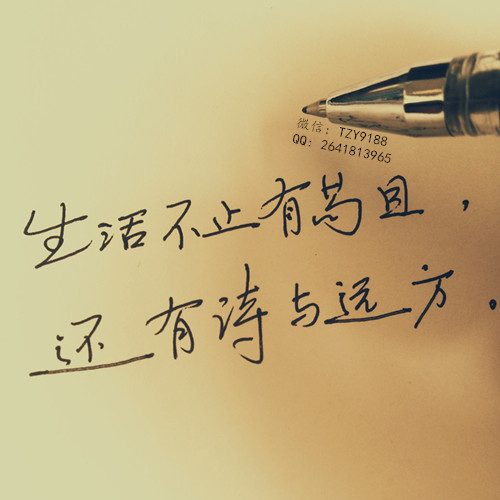 微信: TZY9188
QQ: 2641813965
生活不止有苟且，
还有诗与远方。